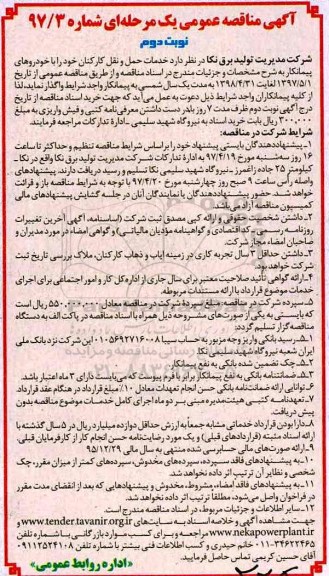 آگهی مناقصه عمومی یک مرحله‌ای شماره ۹۷/۳
نوبت دوم
شرکت مدیریت تولید برق نکا در نظر دارد خدمات حمل و نقل کارکنان خود را با خودروهای
پیمانکار به شرح مشخصات و جزئیات مندرج در اسناد مناقصه و از طریق مناقصه عمومی از تاریخ
۱۳۹۷/۵/۱ لغایت ۱۳۹۸/۴/۳۱ به مدت یک سال شمسی به پیمانکار واجد شرایط واگذار نماید، لذا
از کلیه پیمانکاران واجد شرایط ذیل دعوت به عمل می‌آید که جهت خرید اسناد مناقصه از تاریخ
درج آگهی نوبت دوم ظرف مدت ۷ روز با در دست داشتن معرفی‌نامه کتبی و فیش واریزی به مبلغ
۳۰۰,۰۰۰ ریال بابت خرید اسناد به نیروگاه شهید سلیمی ـ اداره تدارکات مراجعه فرمایند.
شرایط شرکت در مناقصه:
۱ـ پیشنهاددهندگان بایستی پیشنهاد خود را براساس شرایط مناقصه تنظیم و حداکثر تا ساعت
۱۶ روز سه‌شنبه مورخ ۹۷/۴/۱۹ به اداره تدارکات شرکت مدیریت تولید برق نکا واقع در نکا ـ
کیلومتر ۲۵ جاده زاغمرز ـ نیروگاه شهید سلیمی نکا تسلیم و رسید دریافت دارند. پیشنهادهای
واصله راس ساعت ۹ صبح روز چهارشنبه مورخ ۹۷/۴/۲۰ با توجه به شرایط مناقصه باز و قرائت
خواهد شد. حضور پیشنهاددهندگان یا نمایندگان آنان در جلسه گشایش پیشنهادهای مالی
کمیسیون مناقصه آزاد می‌باشد.
۲ـ داشتن شخصیت حقوقی و ارائه کپی مصدق ثبت شرکت (اساسنامه، آگهی آخرین تغییرات
روزنامه رسمی ـ کد اقتصادی و گواهینامه مؤدیان مالیاتی) و گواهی امضاء در مورد مدیران و
صاحبان امضاء مجاز شرکت.
۳ـ داشتن حداقل ۳ سال تجربه کاری در زمینه ایاب و ذهاب کارکنان، ملاک بررسی تاریخ ثبت
شرکت خواهد بود.
۴ـ ارائه گواهی تأیید صلاحیت معتبر برای سال جاری از اداره کل کار و امور اجتماعی برای اجرای
خدمات موضوع قرارداد با ارائه مستندات مربوطه.
۵ـ سپرده شرکت در مناقصه: مبلغ سپرده شرکت در مناقصه معادل ۵۵۰,۰۰۰,۰۰۰ ریال است
که بایستی به یکی از صورت‌های مشروحه ذیل همراه با اسناد مناقصه در پاکت الف به دستگاه
مناقصه گزار تسلیم گردد:
۱ـ۵ـ رسید بانکی واریز وجه مزبور به حساب سیبا ۰۱۰۵۶۹۲۷۱۶۰۰۸ این شرکت نزد بانک ملی
ایران شعبه نیروگاه شهید سلیمی نکا
۲ـ۵ـ چک تضمین شده بانکی به نفع پیمانکار.
۳ـ۵ـ ضمانتنامه بانکی به نفع پیمانکار برابر با فرم پیوست که می‌بایست دارای ۳ ماه اعتبار باشد.
۶ـ توانایی ارائه ضمانت‌نامه بانکی حسن انجام تعهدات معادل ۱۰٪ مبلغ قرارداد در هنگام عقد قرارداد.
۷ـ تعهدنامه کتبی هیئت مدیره مبنی بر دو ماه اجرای کامل خدمات موضوع مناقصه بدون
پیش دریافت.
۸ـ دارا بودن قرارداد خدماتی مشابه جمعاً به ارزش حداقل دوازده میلیارد ریال در ۵ سال گذشته با
ارائه اسناد مثبته (قراردادهای قبلی) و یک مورد رضایت‌نامه حسن انجام کار از کارفرمایان قبلی.
۹ـ ارائه صورت‌های مالی حسابرسی شده منتهی به سال مالی ۹۵/۱۲/۲۹
۱۰ـ به پیشنهادهای فاقد سپرده، سپرده‌های مخدوش، سپرده‌های کمتر از میزان مقرر، چک
شخصی و نظایر آن ترتیب اثر داده نخواهد شد.
۱۱ـ به پیشنهادهای فاقد امضاء، مشروط، مخدوش و پیشنهادهایی که بعد از انقضای مدت مقرر
در فراخوان واصل می‌شود، مطلقاً ترتیب اثر داده نخواهد شد.
۱۲ـ سایر اطلاعات و جزئیات مربوط، در اسناد مناقصه مندرج است.
جهت مشاهده آگهی و خلاصه اسناد به سایت‌های www.tender.tavanir.org.ir و
www.nekapowerplant.ir مراجعه و برای کسب موارد بازرگانی با شماره تلفن
۰۱۱-۳۴۶۲۲۴۶۵ خانم حیدری و کسب اطلاعات فنی بیشتر با شماره تلفن ۰۹۱۱۲۵۲۴۱۰۸
آقای حسین کریمی تماس حاصل فرمایید.
«اداره روابط عمومی»